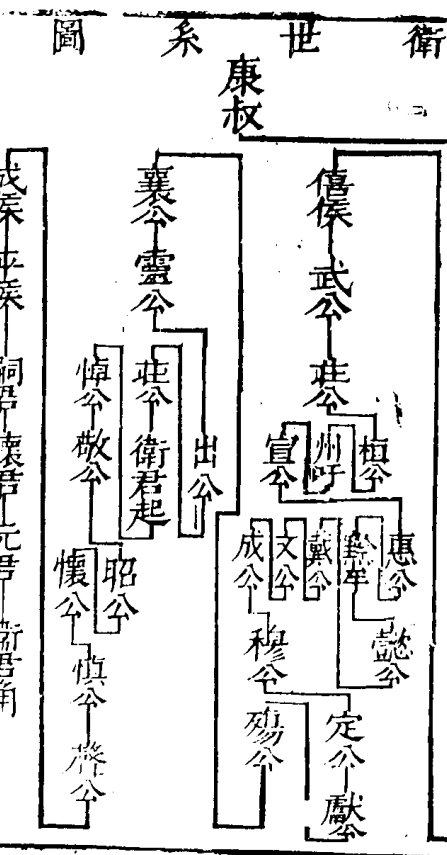 衛世系圖
康叔
僖侯
武公
莊公
桓公
州吁
宣公
惠公
黔牟
懿公
戴公
文公
成公
穆公
定公
獻公
殤公
襄公
靈公
出公
莊公
衛君起
悼公
敬公
昭公
懷公
慎公
聲公
成侯
平侯
嗣君
懷君
元君
衛君角